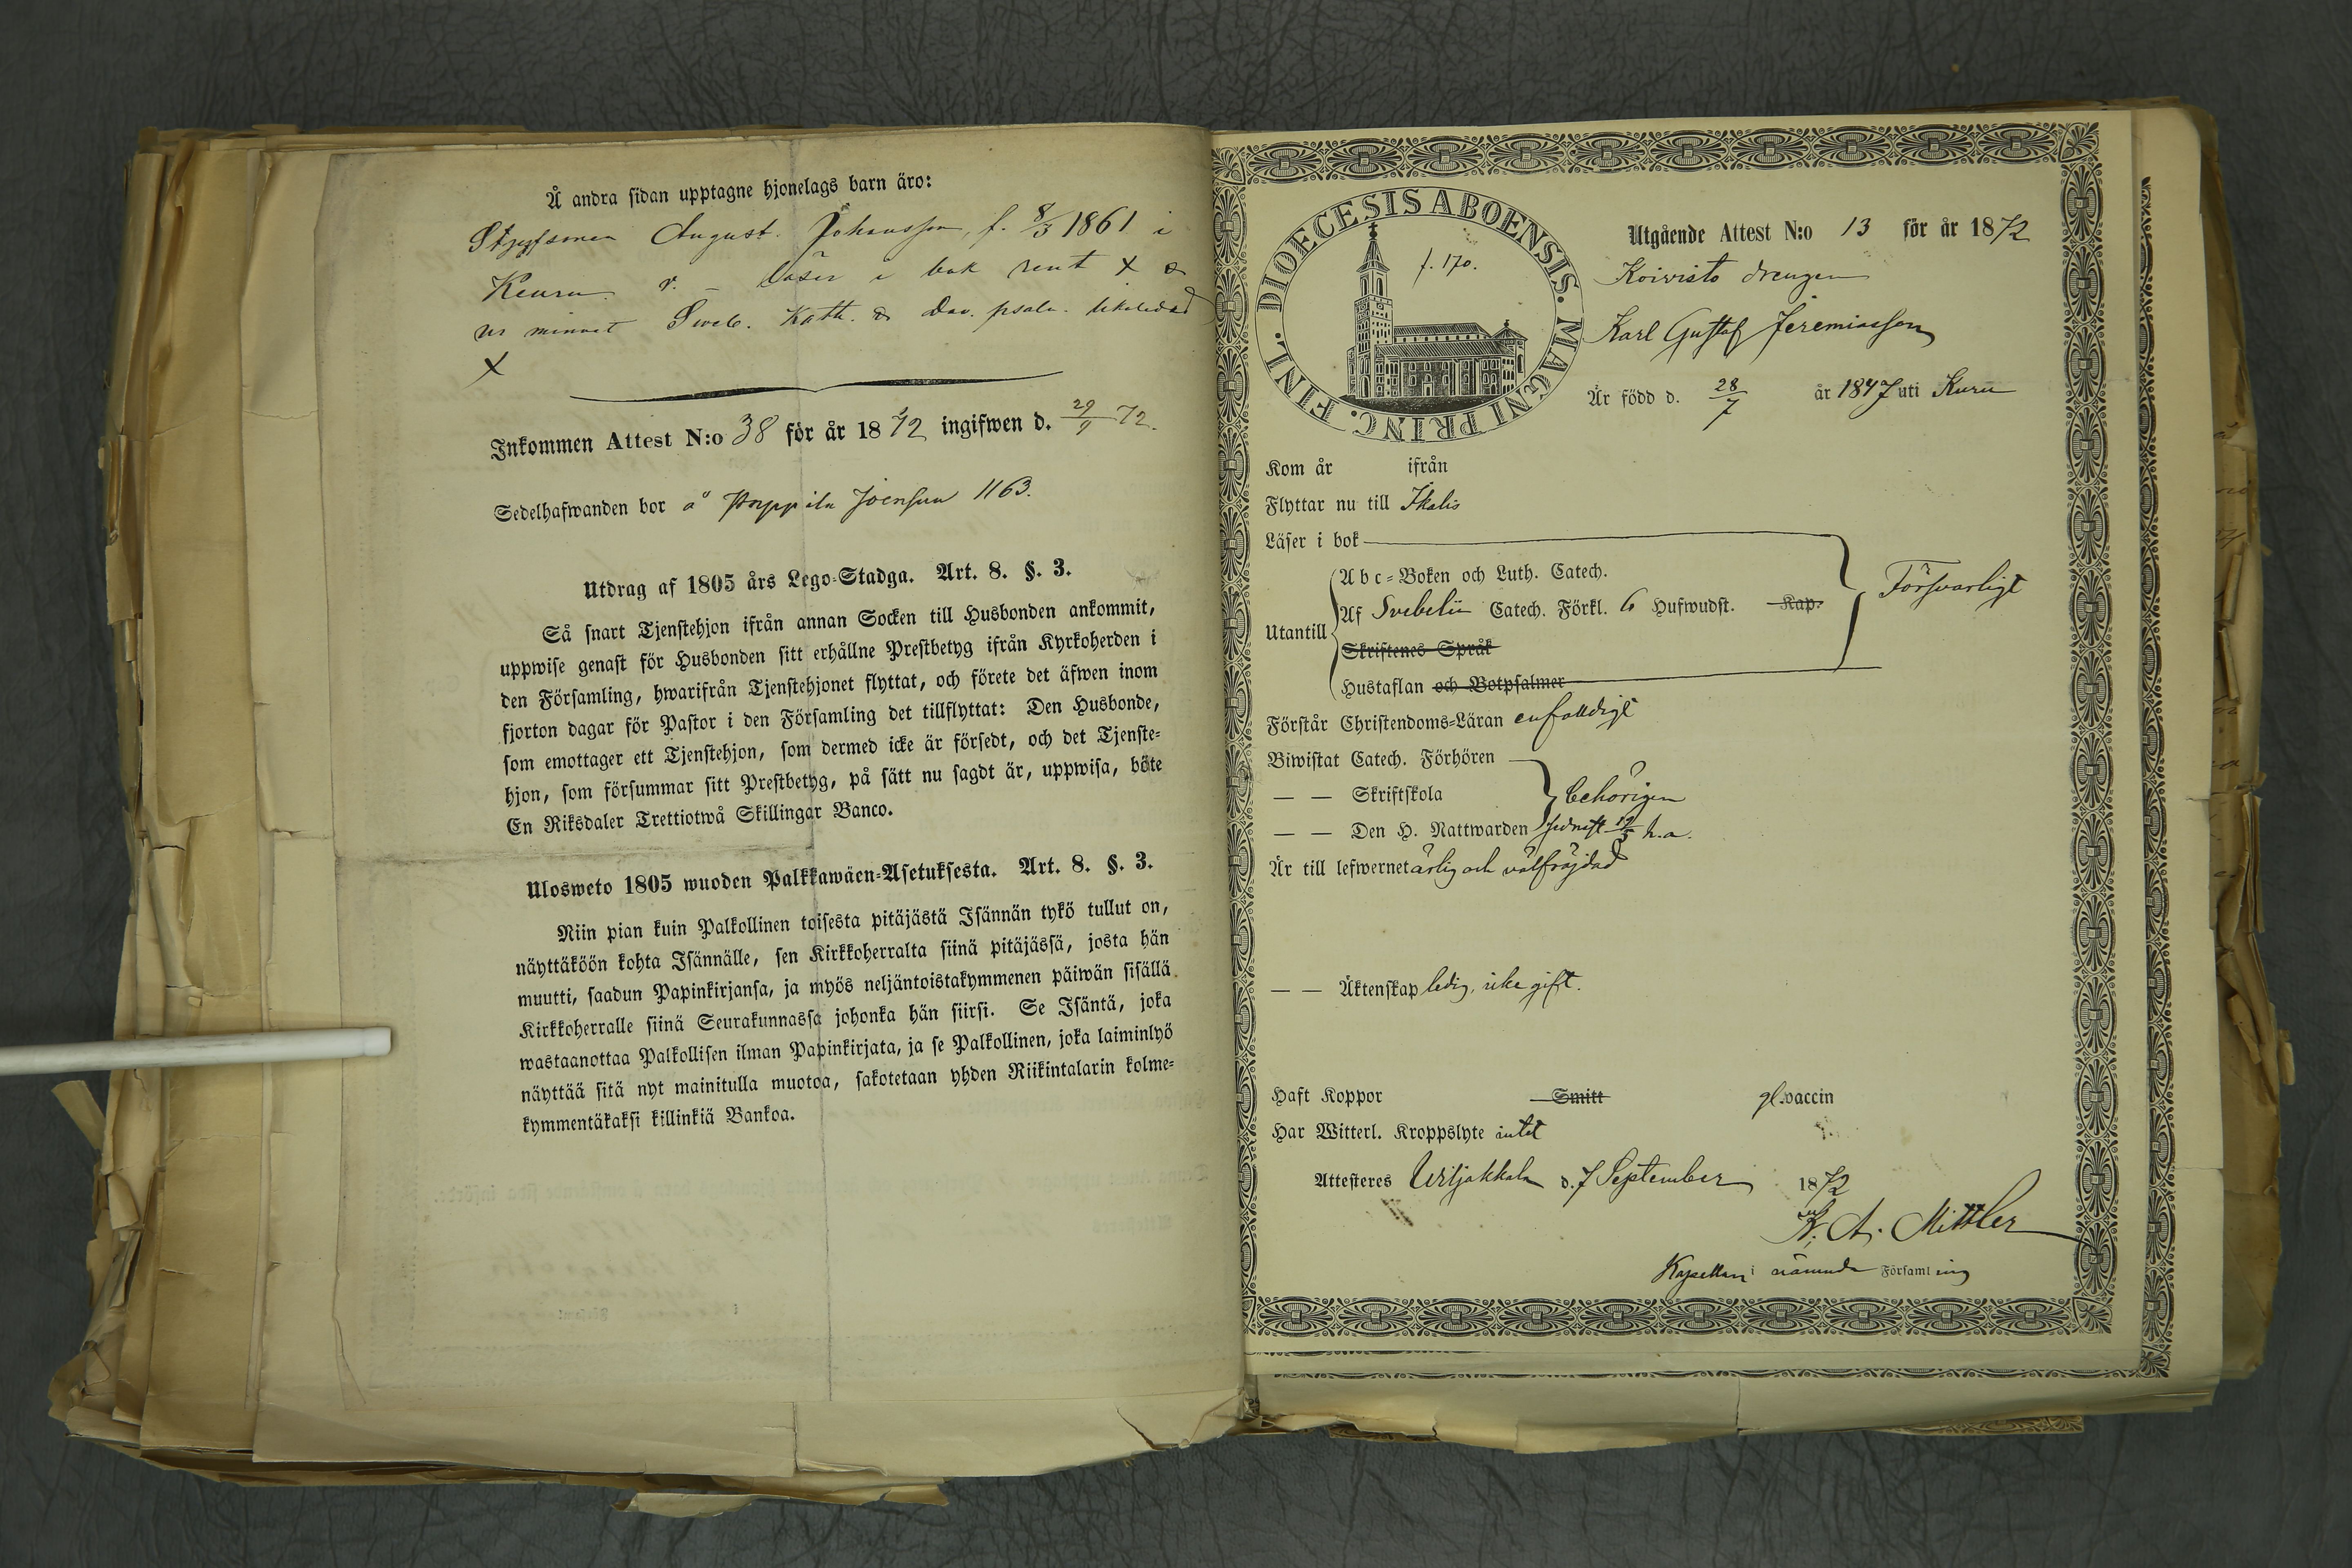 Å andra sidan upptagne hjonelags barn äro:
Styfsonen August Johansson, f. 8/3 1861 i
Keuru v. – läser i bok rent x &
ur minnet Sveb. Kath. & Dav. psalm. likaledes
x
Inkommen Attest N:o 38 för år 1872 ingifwen d. 29/9 72.
Sedelhafwanden bor å Poppila Joensuu 1163.
Utdrag af 1805 års Lego-Stadga. Art. 8. §. 3.
Så snart Tjenstehjon ifrån annan Socken till Husbonden ankommit,
uppwise genast för Husbonden sitt erhållne Prestbetyg ifrån Kyrkoherden i
den Församling, hwarifrån Tjenstehjonet flyttat, och förete det äfwen inom
fjorton dagar för Pastor i den Församling det tillflyttat: Den Husbonde,
som emottager ett Tjenstehjon, som dermed icke är försedt, och det Tjenste-
hjon, som försummar sitt Prestbetyg, på sätt nu sagdt är, uppwisa, böte
En Riksdaler Trettiotwå Skillingar Banco.
Ulosweto 1805 wuoden Palkkawäen-Asetuksesta. Art. 8. §. 3.
Niin pian kuin Palkollinen toisesta pitäjästä Isännän tykö tullut on,
näyttäköön kohta Isännälle, sen Kirkkoherralta siinä pitäjässä, josta hän
muutti, saadun Papinkirjansa, ja myös neljäntoistakymmenen päiwän sisällä
Kirkkoherralle siinä Seurakunnassa johonka hän siirsi. Se Isäntä, joka
wastaanottaa Palkollisen ilman Papinkirjata, ja se Palkollinen, joka laiminlyö
näyttää sitä nyt mainitulla muotoa, sakotetaan yhden Riikintalarin kolme-
kymmentäkaksi killinkiä Bankoa.
DIOECESIS ABOENSIS. MAGNI PRINC. FINL.
f. 170.
Utgående Attest N:o 13 för år 1872
Koivisto drengen
Karl Gustaf Jeremiasson
Är född d. 28/7 år 1847 uti Kuru
Kom år ifrån
Flyttar nu till Ikalis
Läser i bok
Utantill
Abc-Boken och Luth. Catech.
Af Svebelii Catech. Förkl. 6 Hufwudst. Kap.
Skriftenes Språk
Hustaflan och Botpsalmer
Försvarligt
Förstår Christendoms-Läran enfalldigt
Biwistat Catech. Förhören
— — Skriftskola behörigen
— — Den H. Nattwarden sednast 12/5 h.a.
Är till lefwernet ärlig och välfrejdad
— — Äktenskap ledig, icke gift.
Haft Koppor Smitt gl. vaccin
Har Witterl. Kroppslyte intet
Attesteres Wiljakkala d. 7 September 1872
K. A. Mittler
Kapellan i nämnde Församling